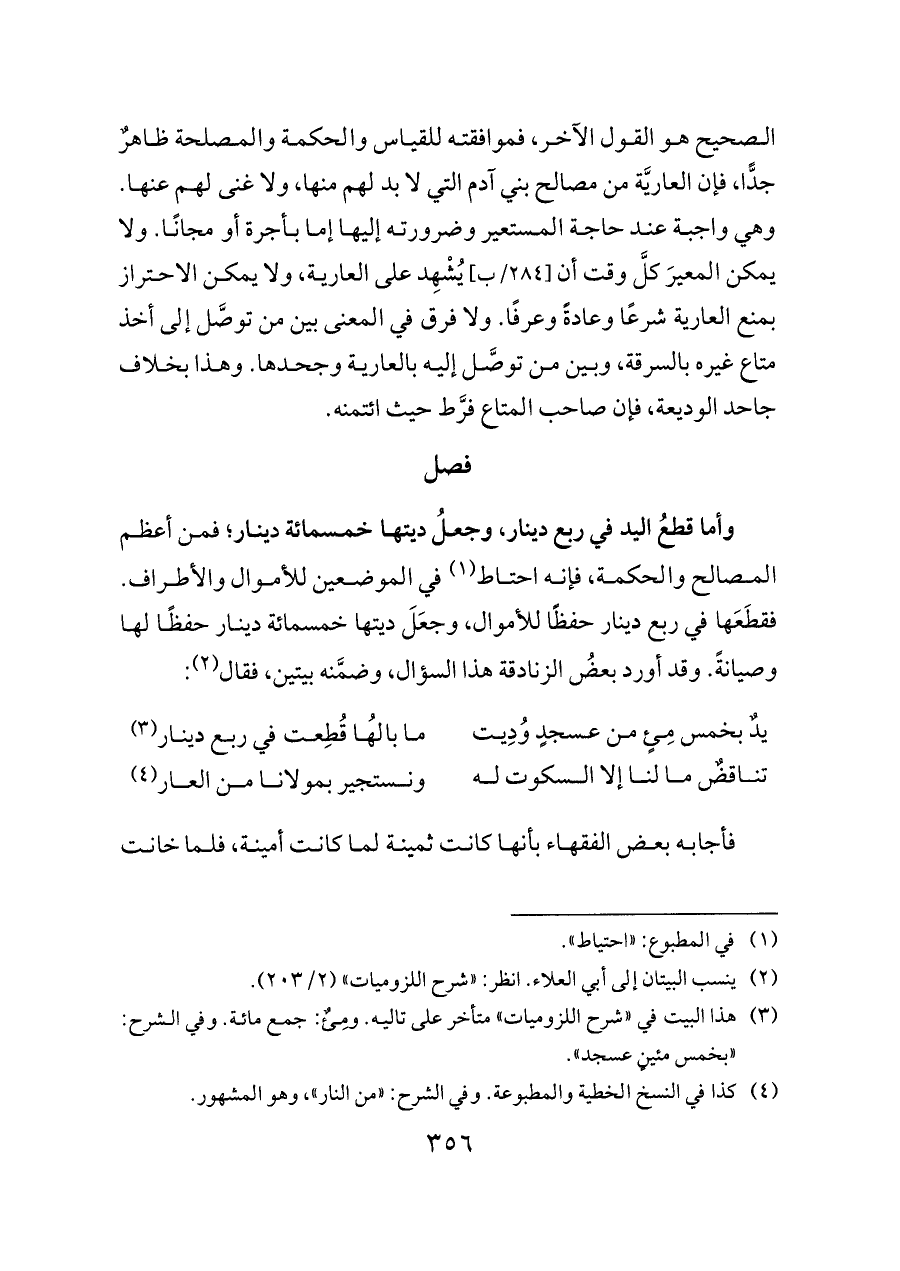 الصحيح هو القول الآخر، فموافقته للقياس والحكمة والمصلحة ظاهرٌ
جدًّا، فإن العاريَّة من مصالح بني آدم التي لا بد لهم منها، ولا غنى لهم عنها.
وهي واجبة عند حاجة المستعير وضرورته إليها إما بأجرة أو مجانًا. ولا
يمكن المعيرَ كلَّ وقت أن [٢٨٤/ ب] يُشْهِد على العارية، ولا يمكن الاحتراز
بمنع العارية شرعًا وعادةً وعرفًا. ولا فرق في المعنى بين من توصَّل إلى أخذ
متاع غيره بالسرقة، وبين من توصَّل إليه بالعارية وجحدها. وهذا بخلاف
جاحد الوديعة، فإن صاحب المتاع فرَّط حيث ائتمنه.
فصل
وأما قطعُ اليد في ربع دينار، وجعلُ ديتها خمسمائة دينار؛ فمن أعظم
المصالح والحكمة، فإنه احتاط(١) في الموضعين للأموال والأطراف.
فقطَعَها في ربع دينار حفظًا للأموال، وجعَلَ ديتها خمسمائة دينار حفظًا لها
وصيانةً. وقد أورد بعضُ الزنادقة هذا السؤال، وضمَّنه بيتين، فقال(٢):
يدٌ بخمس مِئٍ من عسجدٍ وُدِيت ما بالهُا قُطِعت في ربع دينار(٣)
تناقضٌ ما لنا إلا السكوت له ونستجير بمولانا من العار(٤)
فأجابه بعض الفقهاء بأنها كانت ثمينة لما كانت أمينة، فلما خانت
(١) في المطبوع: «احتياط».
(٢) ينسب البيتان إلى أبي العلاء. انظر: «شرح اللزوميات» (٢/ ٢٠٣).
(٣) هذا البيت في «شرح اللزوميات» متأخر على تاليه. ومِئٌ: جمع مائة. وفي الشرح:
«بخمس مئينٍ عسجد».
(٤) كذا في النسخ الخطية والمطبوعة. وفي الشرح: «من النار»، وهو المشهور.
٣٥٦